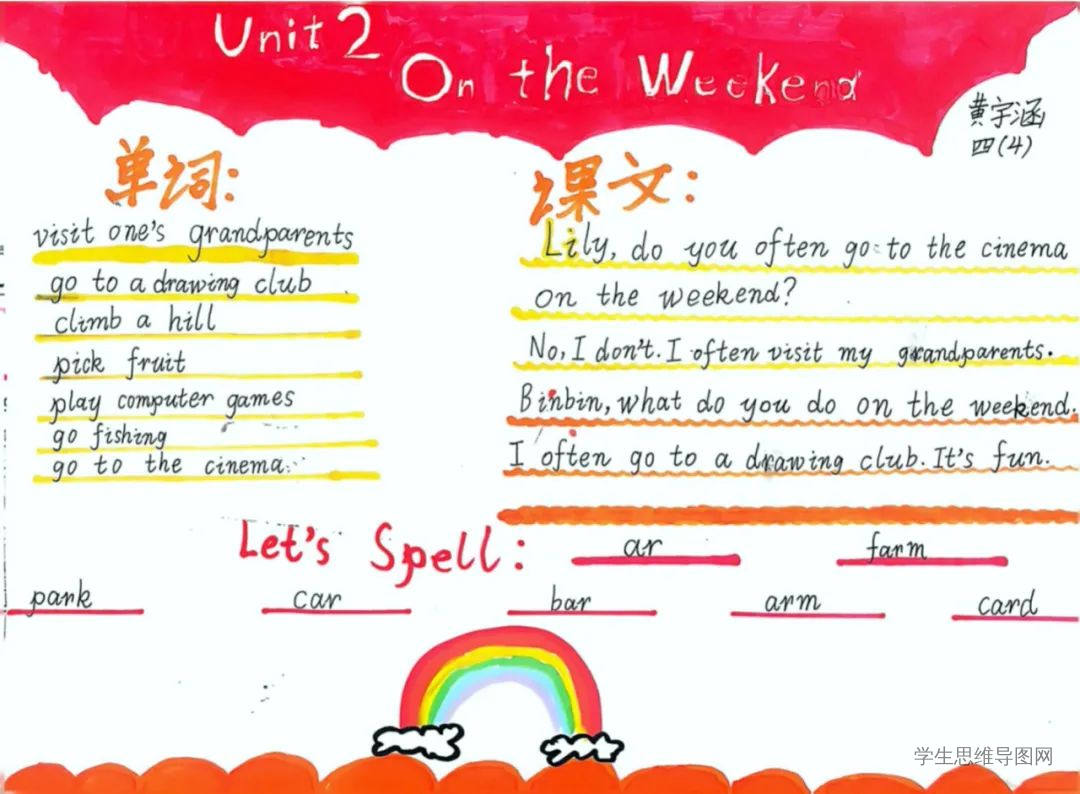 Unit 2
On the Weekend
黄宇涵
四(4)
单词:
visit one's grandparents
go to a drawing club
climb a hill
pick fruit
play computer games
go fishing
go to the cinema.
课文:
Lily, do you often go to the cinema
on the weekend?
No, I don't. I often visit my grandparents.
Binbin, what do you do on the weekend.
I often go to a drawing club. It's fun.
Let's Spell:
ar
farm
park
car
bar
arm
card
学生思维导图网